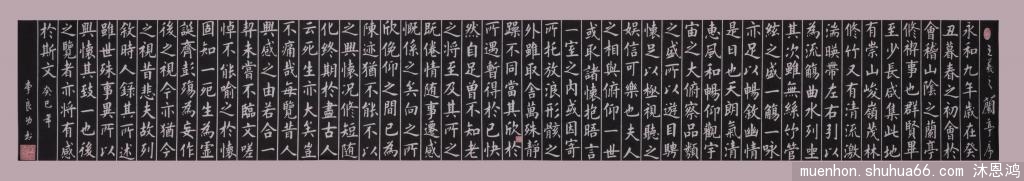 王羲之蘭亭序
永和九年歲在癸
丑暮春之初會於
會稽山陰之蘭亭
修禊事也群賢畢
至少長咸集此地
有崇山峻嶺茂林
修竹又有清流激
湍暎帶左右引以
為流觴曲水列坐
其次雖無絲竹管
絃之盛一觴一詠
亦足以暢敘幽情
是日也天朗氣清
惠風和暢仰觀宇
宙之大俯察品類
之盛所以遊目騁
懷足以極視聽之
娛信可樂也夫人
之相與俯仰一世
或取諸懷抱晤言
一室之內或因寄
所托放浪形骸之
外雖取舍萬殊靜
躁不同當其欣於
所遇暫得於己快
然自足曾不知老
之將至及其所之
既倦情隨事遷感
慨係之矣向之所
欣俛仰之間已為
陳迹猶不能不以
之興懷況修短隨
化終期於盡古人
云死生亦大矣豈
不痛哉每覽昔人
興感之由若合一
契未嘗不臨文嗟
悼不能喻之於懷
固知一死生為虛
誕齊彭殤為妄作
後之視今亦猶今
之視昔悲夫故列
敘時人錄其所述
雖世殊事異所以
興懷其致一也後
之覽者亦將有感
於斯文 癸巳年
李良功書
muenhon.shuhua66.com 沐恩鸿